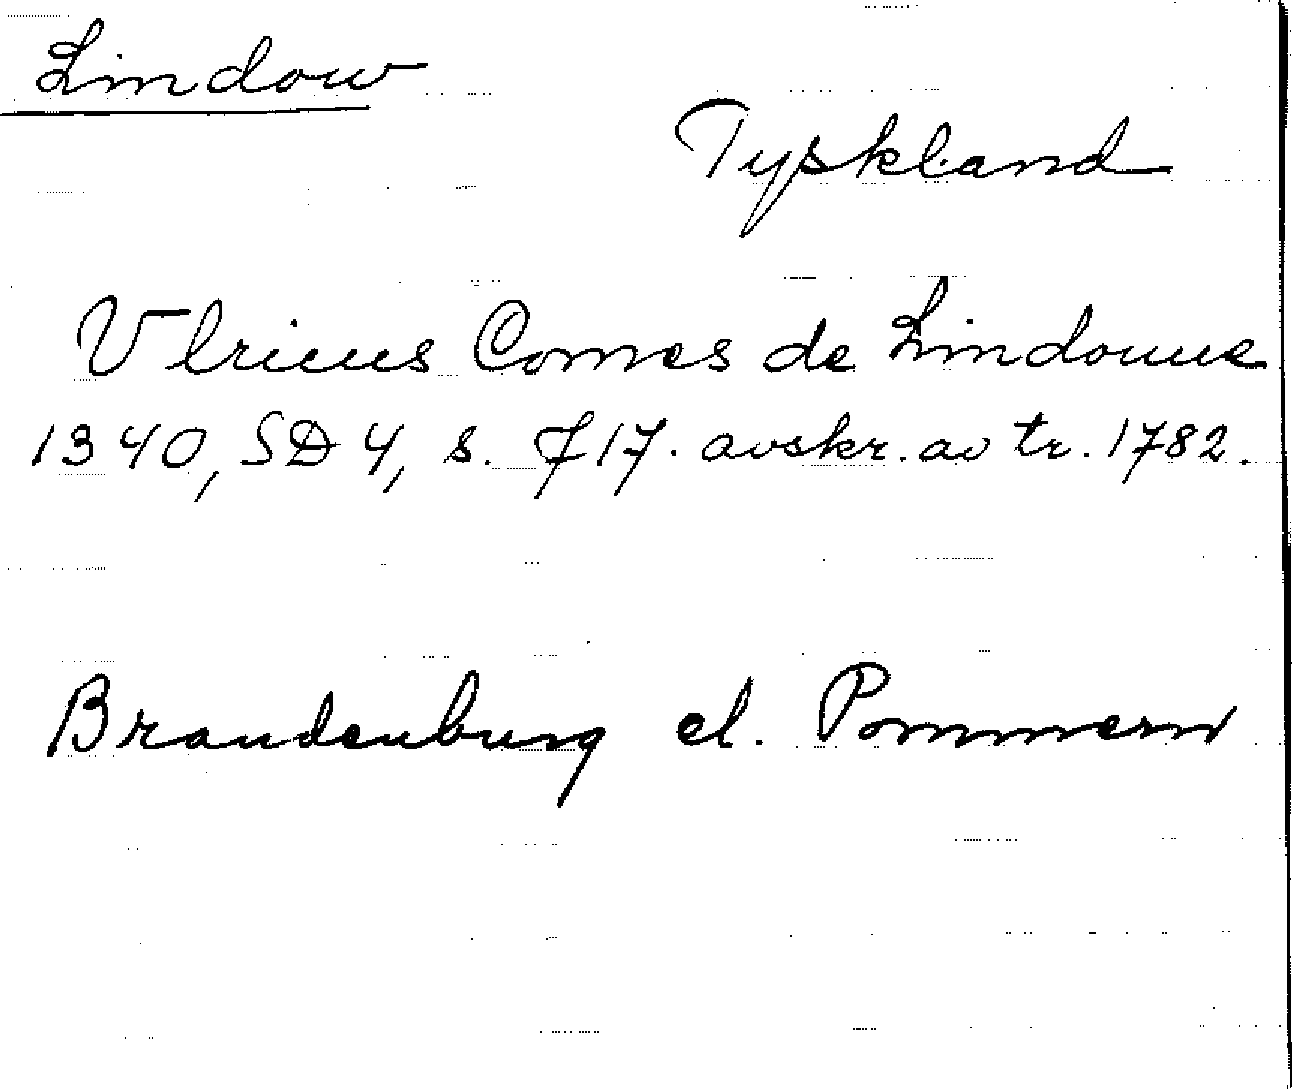 Lindow
Tyskland
Vlricus Comes de Lindouue
1340, SD 4, s. 717. avskr. av tr. 1782.
Brandenburg el. Pommern